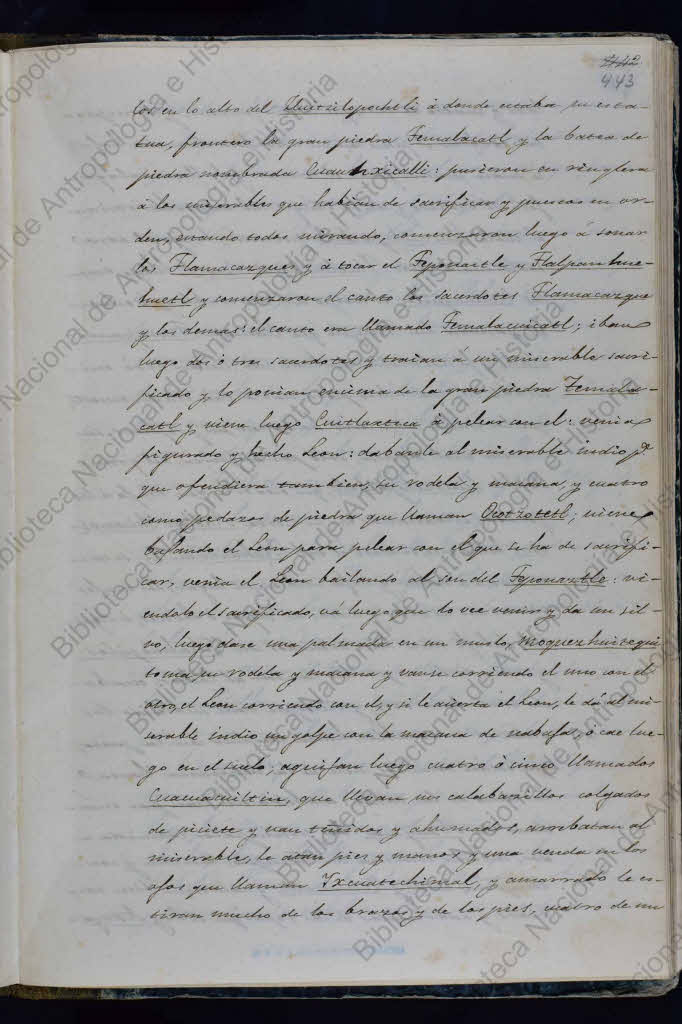 442
443
los en lo alto del Huitzilopochtli á donde estaba su esta-
tua, frontero la gran piedra Temalacatl, y la batea de
piedra nombrada Cuauhxicalli: pusieron en ringlera
á los miserables que habian de sacrificar y puestos en or-
den, estando todos mirando, comenzaron luego á sonar
los Tlamacazques y á tocar el Teponaztle y Tlalpanhue-
huetl y comenzaron el canto los sacerdotes Tlamacazque
y los demas: el canto era llamado Temalacuicatl; iban
luego dos ó tres sacerdotes y traian á un miserable sacri-
ficado y lo ponian encima de la gran piedra Temala-
catl y viene luego Cuitlaxteca á pelear con el: venia
figurado y hecho Leon: dabanle al miserable indio pª
que ofendiera tambien, su rodela y macana, y cuatro
como pedazos de piedra que llaman Ocotzotetl; viene
bajando el Leon para pelear con el que se ha de sacrifi-
car, venia el Leon bailando al son del Teponaztle: vi-
endolo el sacrificado, vá luego que lo vee venir y da un sil-
vo, luego dase una palmada en un muslo, moquezhuitequi
toma su rodela y macana y vanse corriendo el uno con el
otro, el Leon corriendo con el, y si le acierta el Leon, le dá al mi-
serable indio un golpe con la macana de nabaja, ó cae lue-
go en el suelo; aquijan luego cuatro ó cinco llamados
Cuacuacuiltin, que llevan sus calabacillos colgados
de piciete y van tiñidos y ahumados, arrebatan al
miserable, le atan pies y manos y una venda en los
ojos que llaman Ixcuatechimal, y amarrado le es-
tiran mucho de los brazos y de los pies, cuatro de un
Biblioteca Nacional de Antropología e Historia